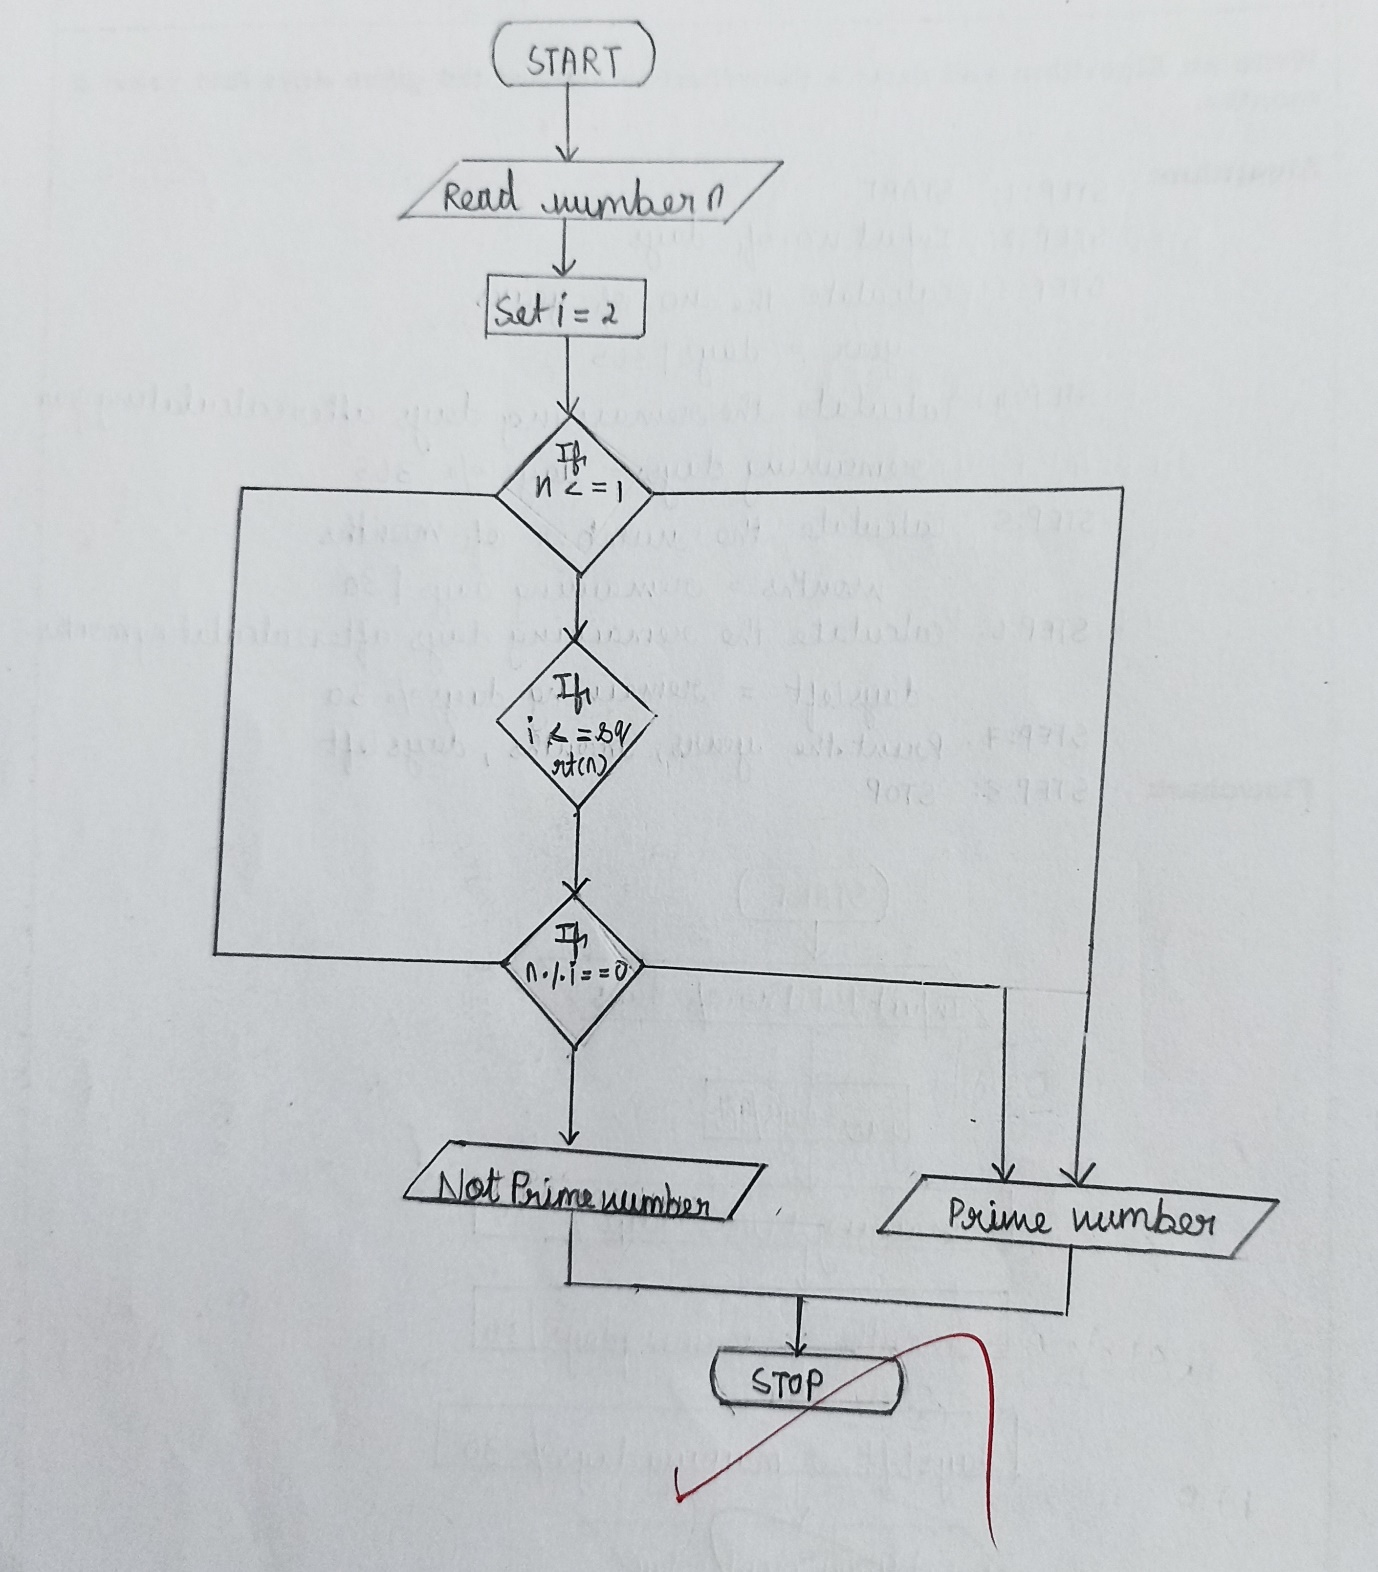 START
Read number n
Set i = 2
If
n < = 1
If
i < = sq
rt(n)
If
n % i = = 0
Not Prime number
Prime number
STOP